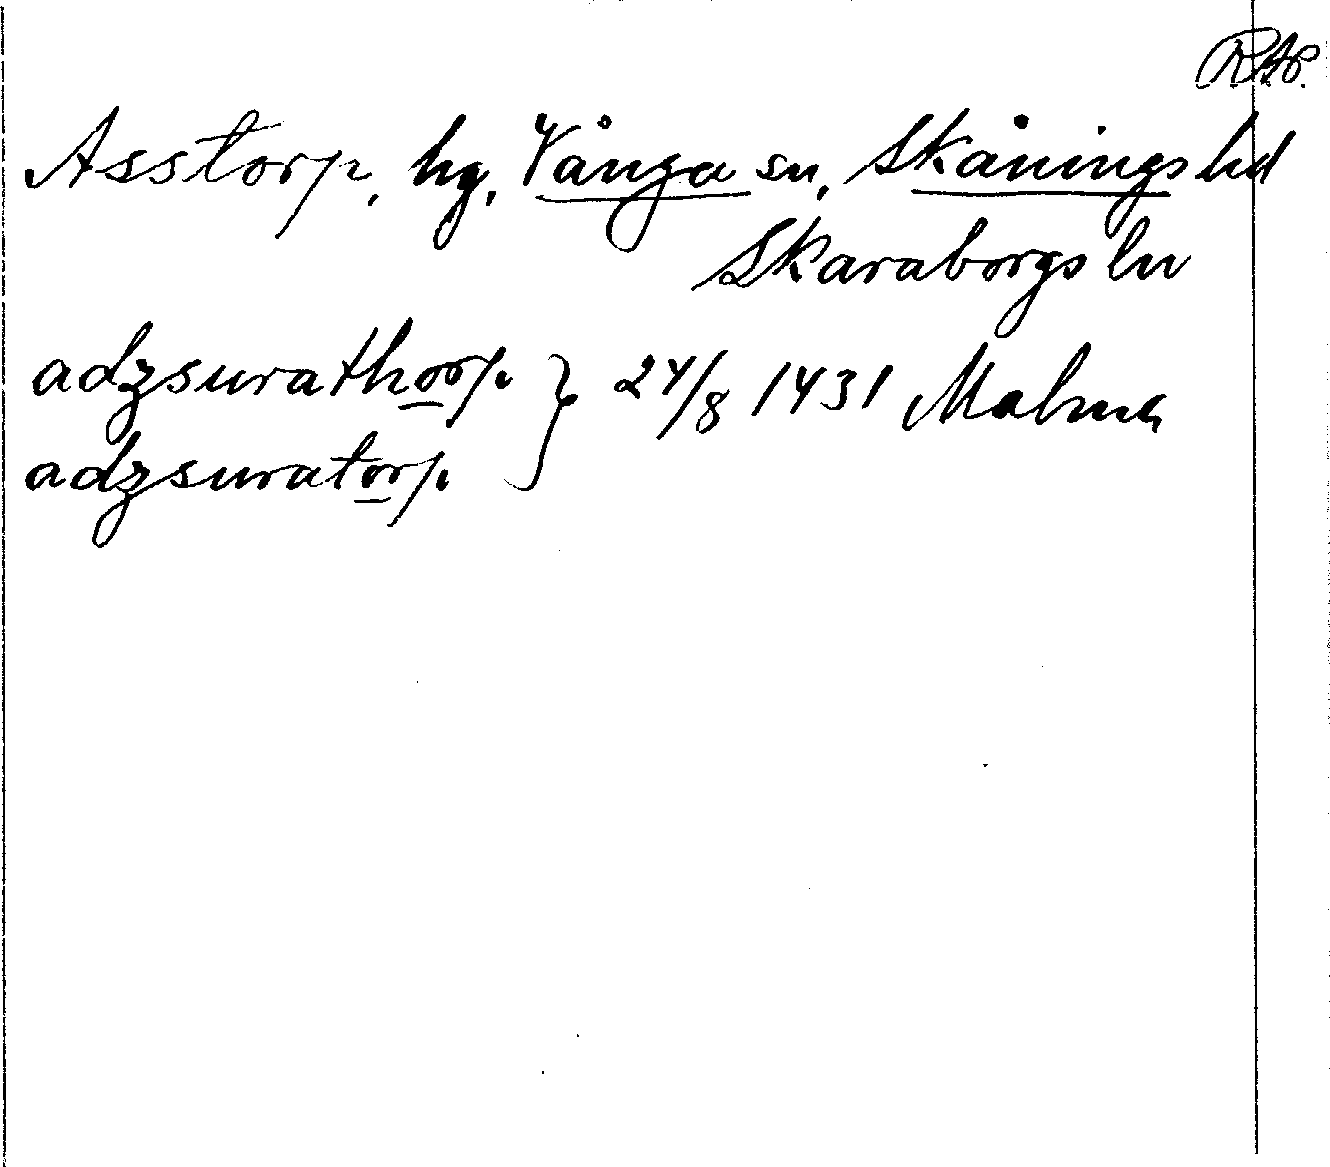 RAP.
Asstorp, hg, Vånga sn, Skånings hd
Skaraborgs ln
adzsurathorp. } 24/8 1431 Malma
adzsuratorp.